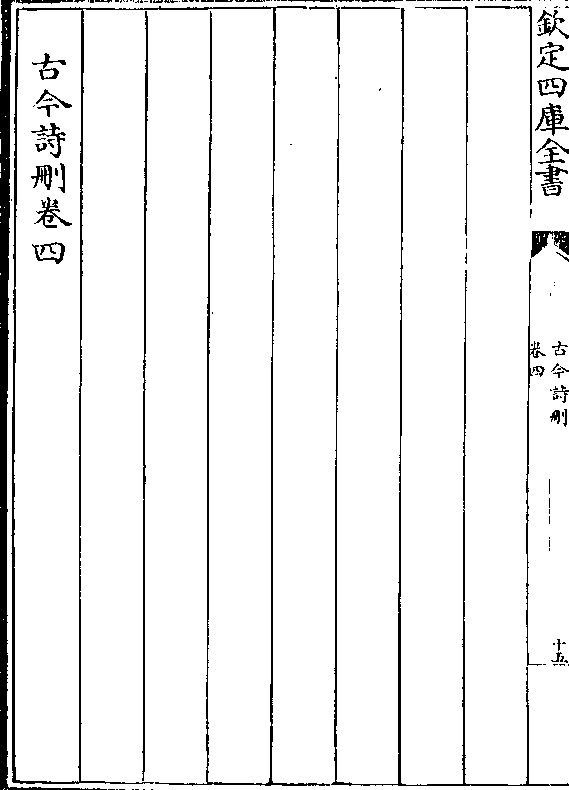 欽定四庫全書
古今詩刪
卷四
十五
古今詩刪卷四